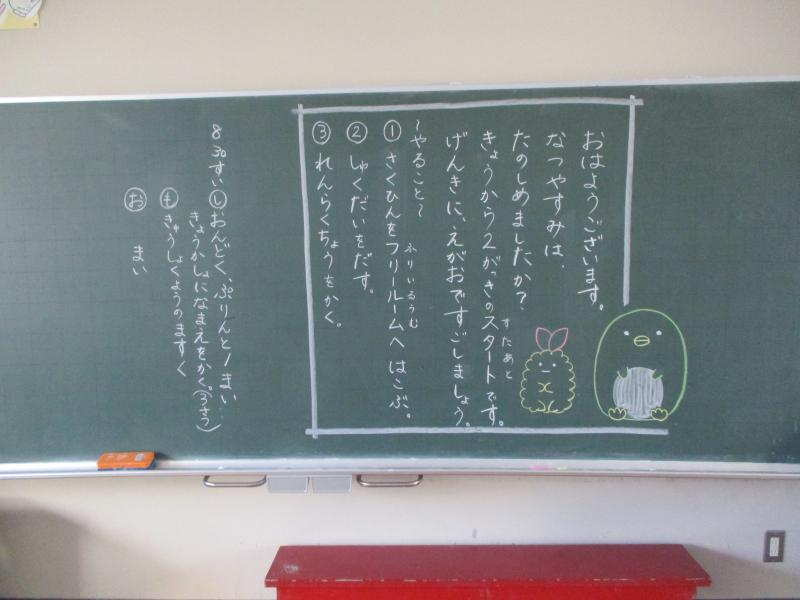 おはようございます。
なつやすみは、
たのしめましたか?
きょうから2がっきのスタートです。
すたあと
げんきに、えがおですごしましょう。
~やること~
① さくひんをフリールームへ はこぶ。
ふりいるうむ
② しゅくだいをだす。
③ れんらくちょうをかく。
8/30 すい
し おんどく、ぷりんと1まい
きょうかしょになまえをかく。(3さつ)
も きゅうしょくようのますく
お まい